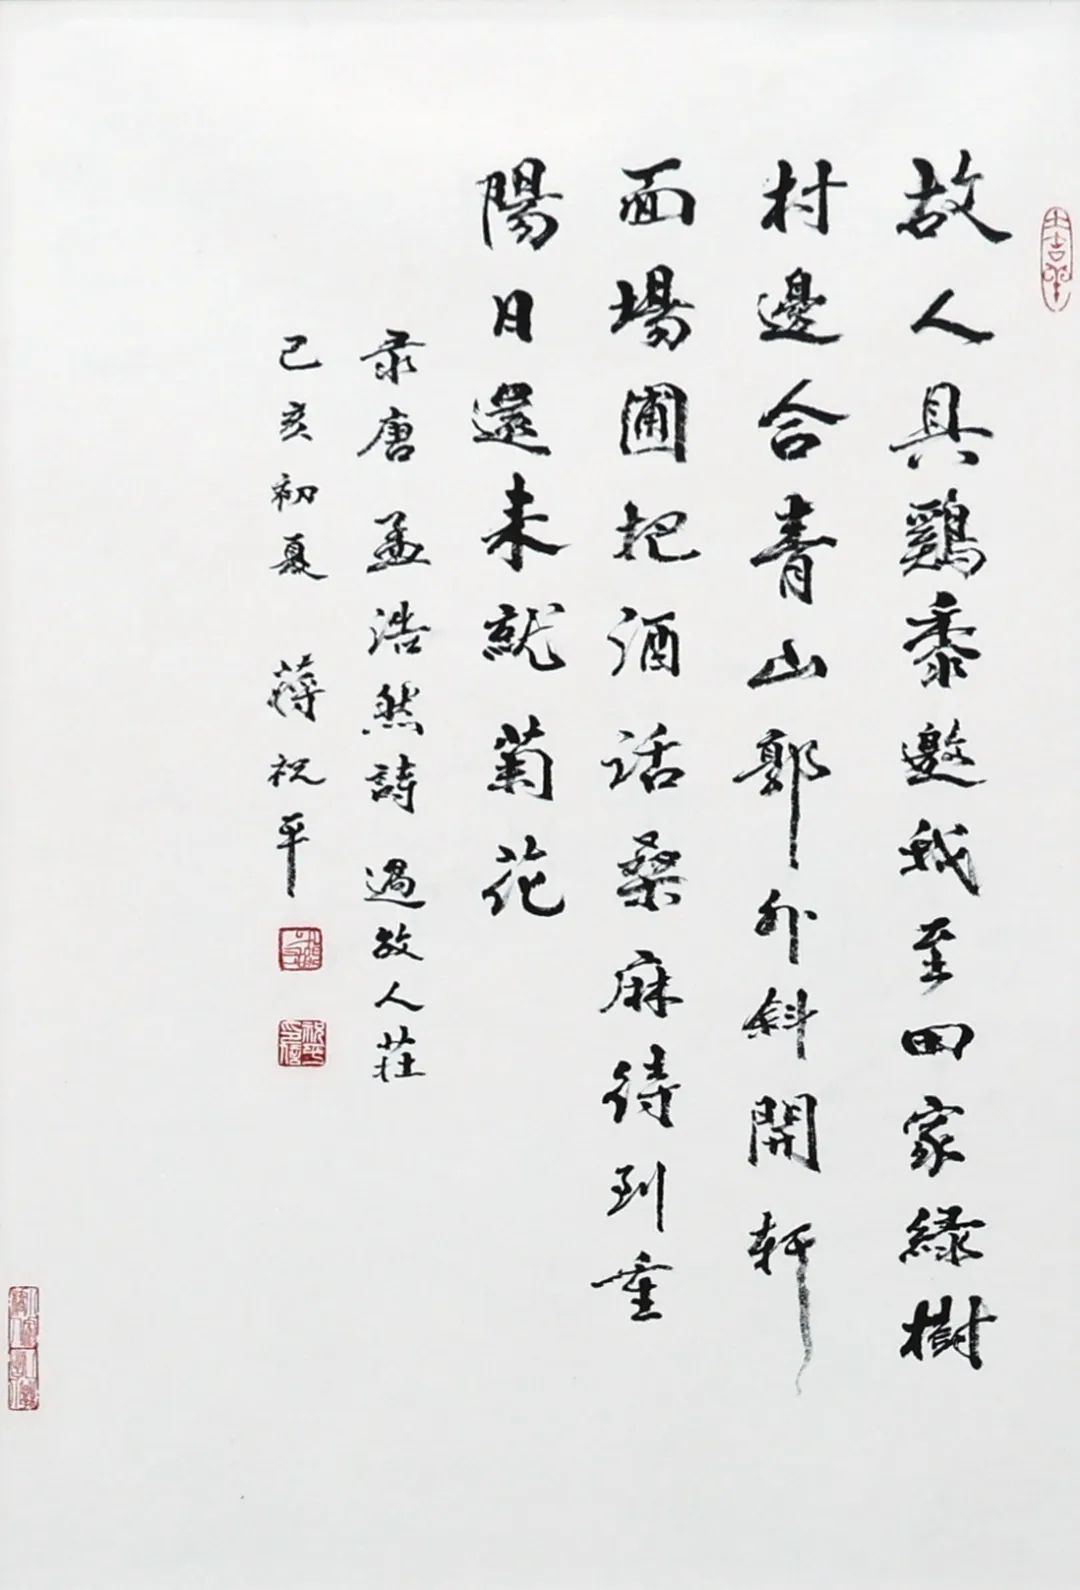 故人具鷄黍邀我至田家緑樹
村邊合青山郭外斜開軒
面場圃把酒話桑麻待到重
陽日還未就菊花
录唐孟浩然詩過故人莊
己亥初夏 蒋祝平